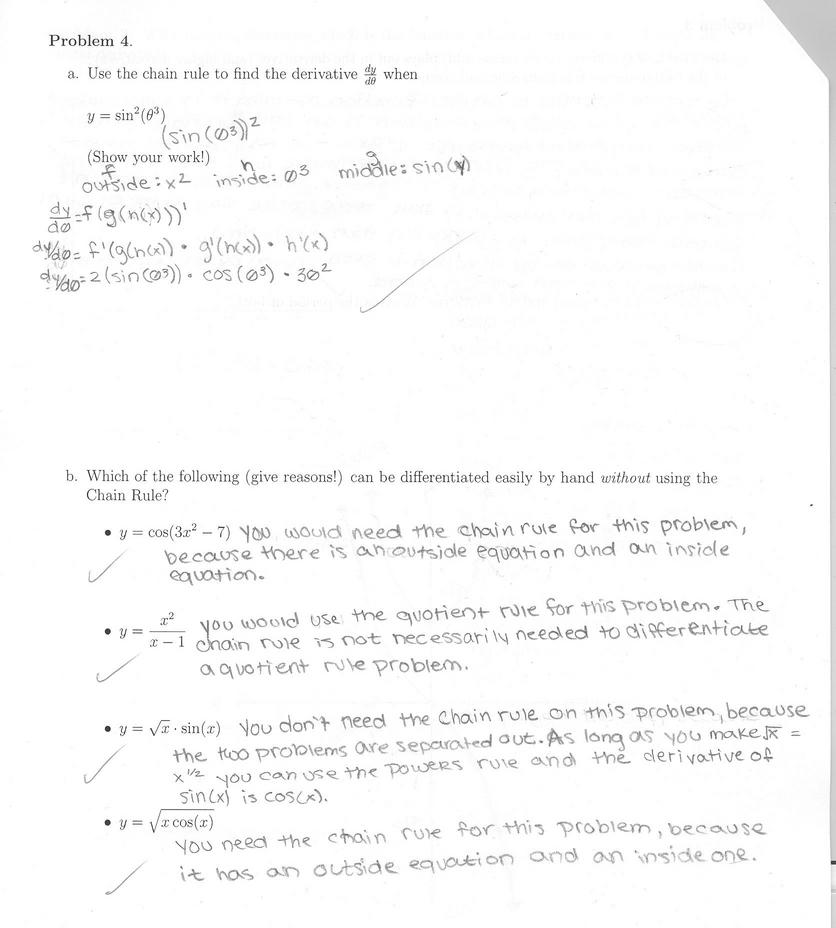 Problem 4.
a. Use the chain rule to find the derivative dy/dθ when
y = sin²(θ³)
(sin(Ø³))²
(Show your work!)
f h g
outside: x² inside: Ø³ middle: sin(x)
dy/dØ = f(g(h(x)))'
dy/dØ = f'(g(h(x)) • g'(h(x)) • h'(x)
dy/dØ = 2(sin(Ø³)) • cos(Ø³) • 3Ø²
b. Which of the following (give reasons!) can be differentiated easily by hand without using the
Chain Rule?
• y = cos(3x² − 7) You would need the chain rule for this problem,
because there is an outside equation and an inside
equation.
• y = x²/(x − 1) you would use the quotient rule for this problem. The
chain rule is not necessarily needed to differentiate
a quotient rule problem.
• y = √x · sin(x) You don't need the Chain rule on this problem, because
the two problems are separated out. As long as you make √x =
x^1/2 you can use the powers rule and the derivative of
sin(x) is cos(x).
• y = √(x cos(x))
You need the chain rule for this problem, because
it has an outside equation and an inside one.